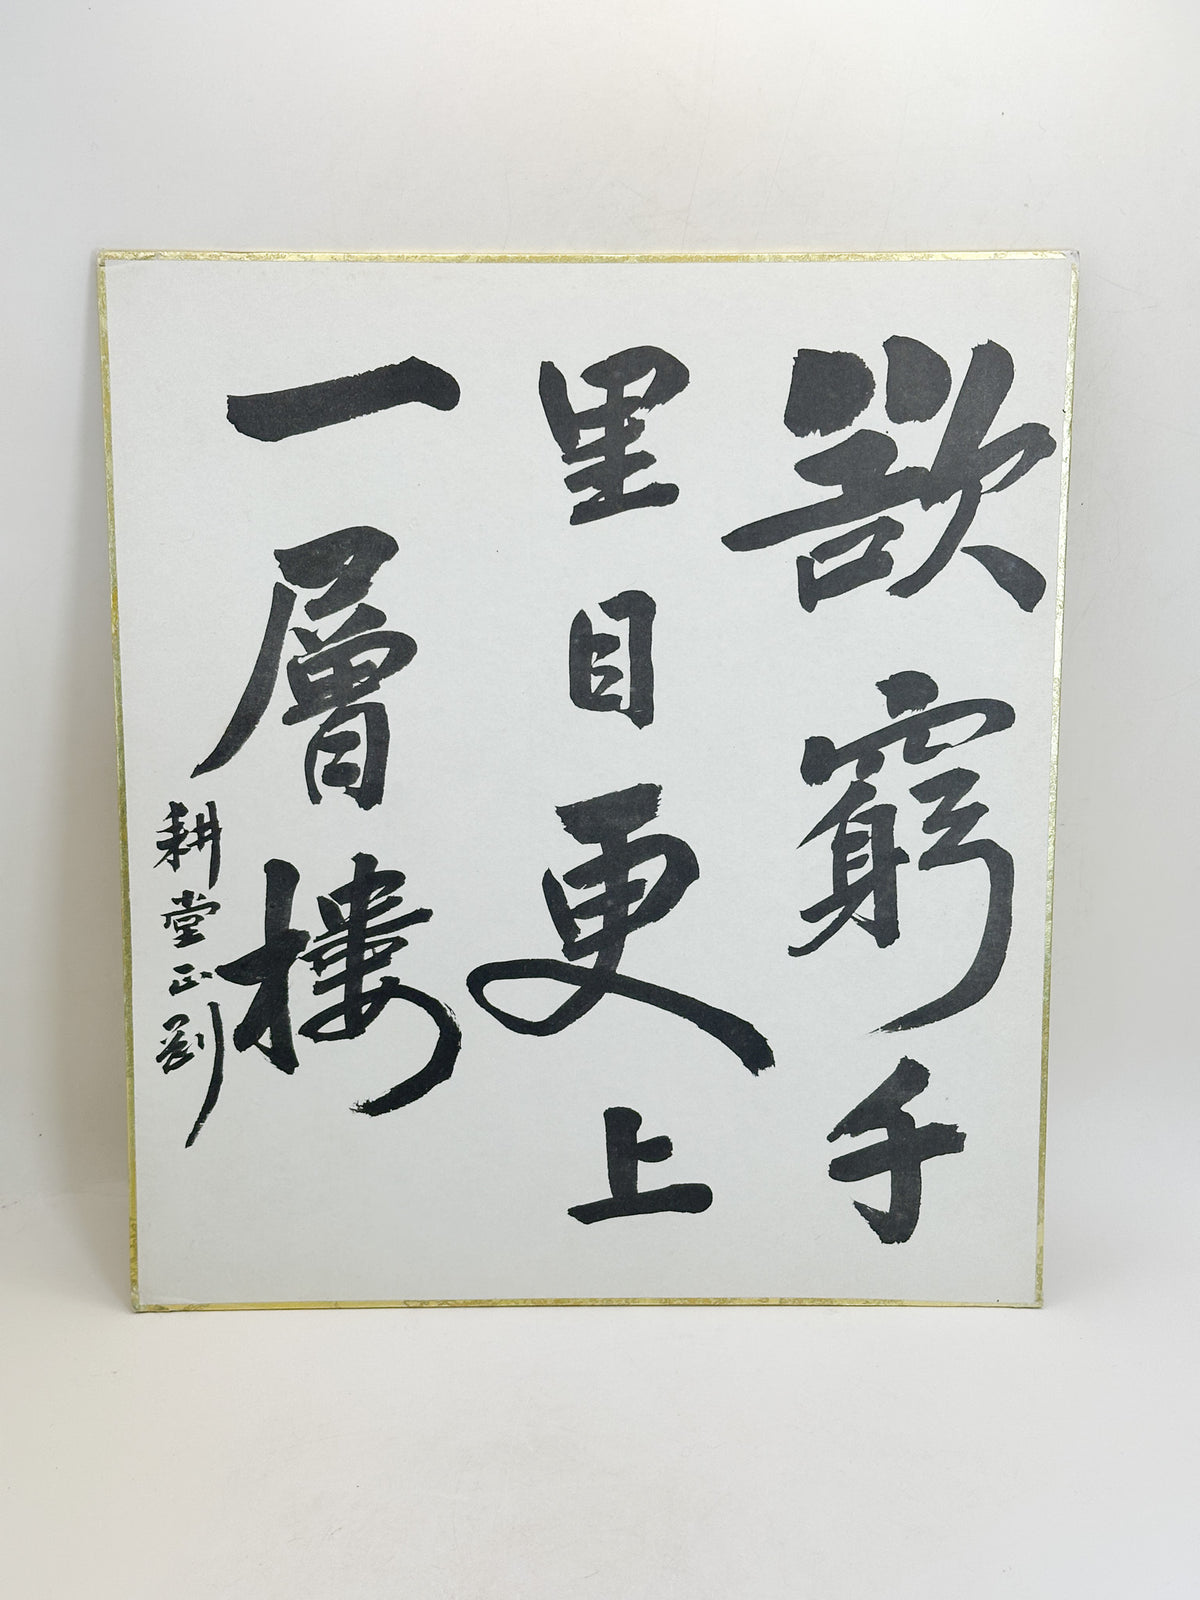 欲窮千
里目更上
一層樓
耕堂正剛